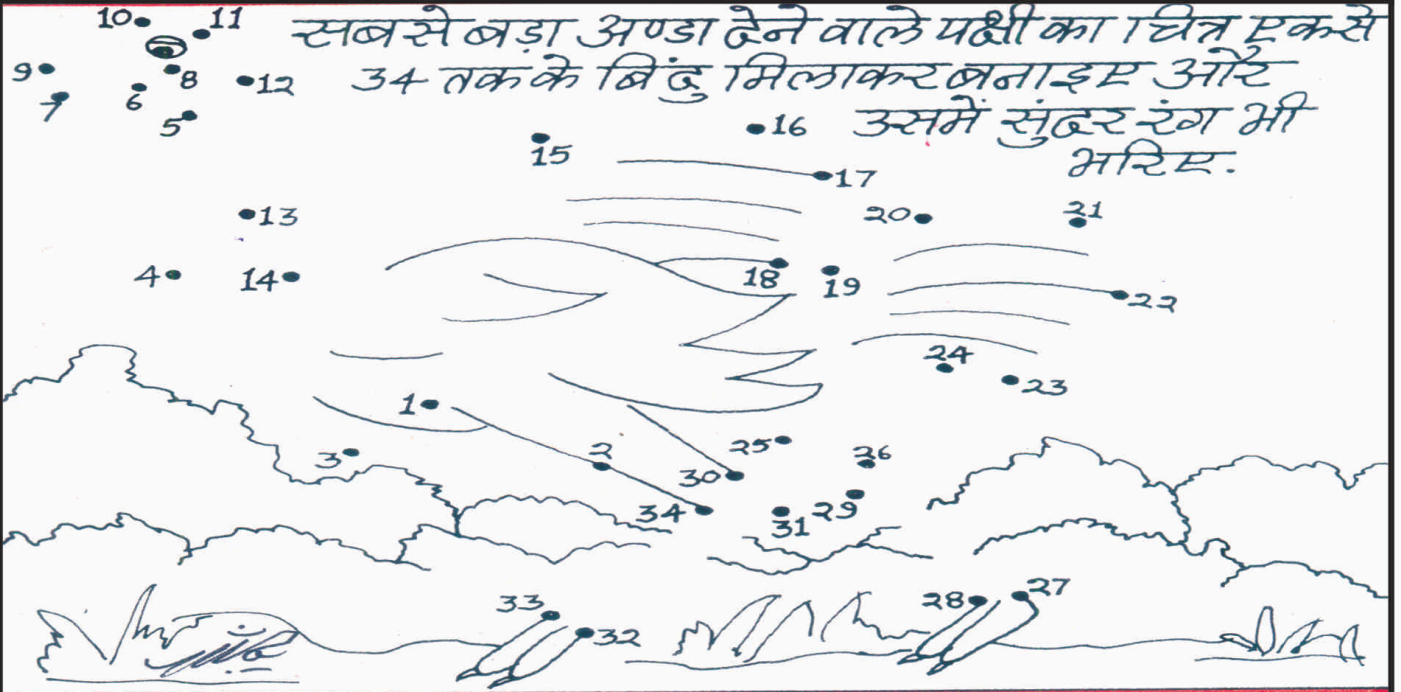 सबसे बड़ा अण्डा देने वाले पक्षी का चित्र एक से
34 तक के बिंदु मिलाकर बनाइए और
उसमें सुंदर रंग भी
भरिए.
10 11
9 8 12
7 6
5
16
15
17
13 20 21
4 14 18 19
22
24
23
1
3 2 25 26
30
34 31 29
33 28 27
32